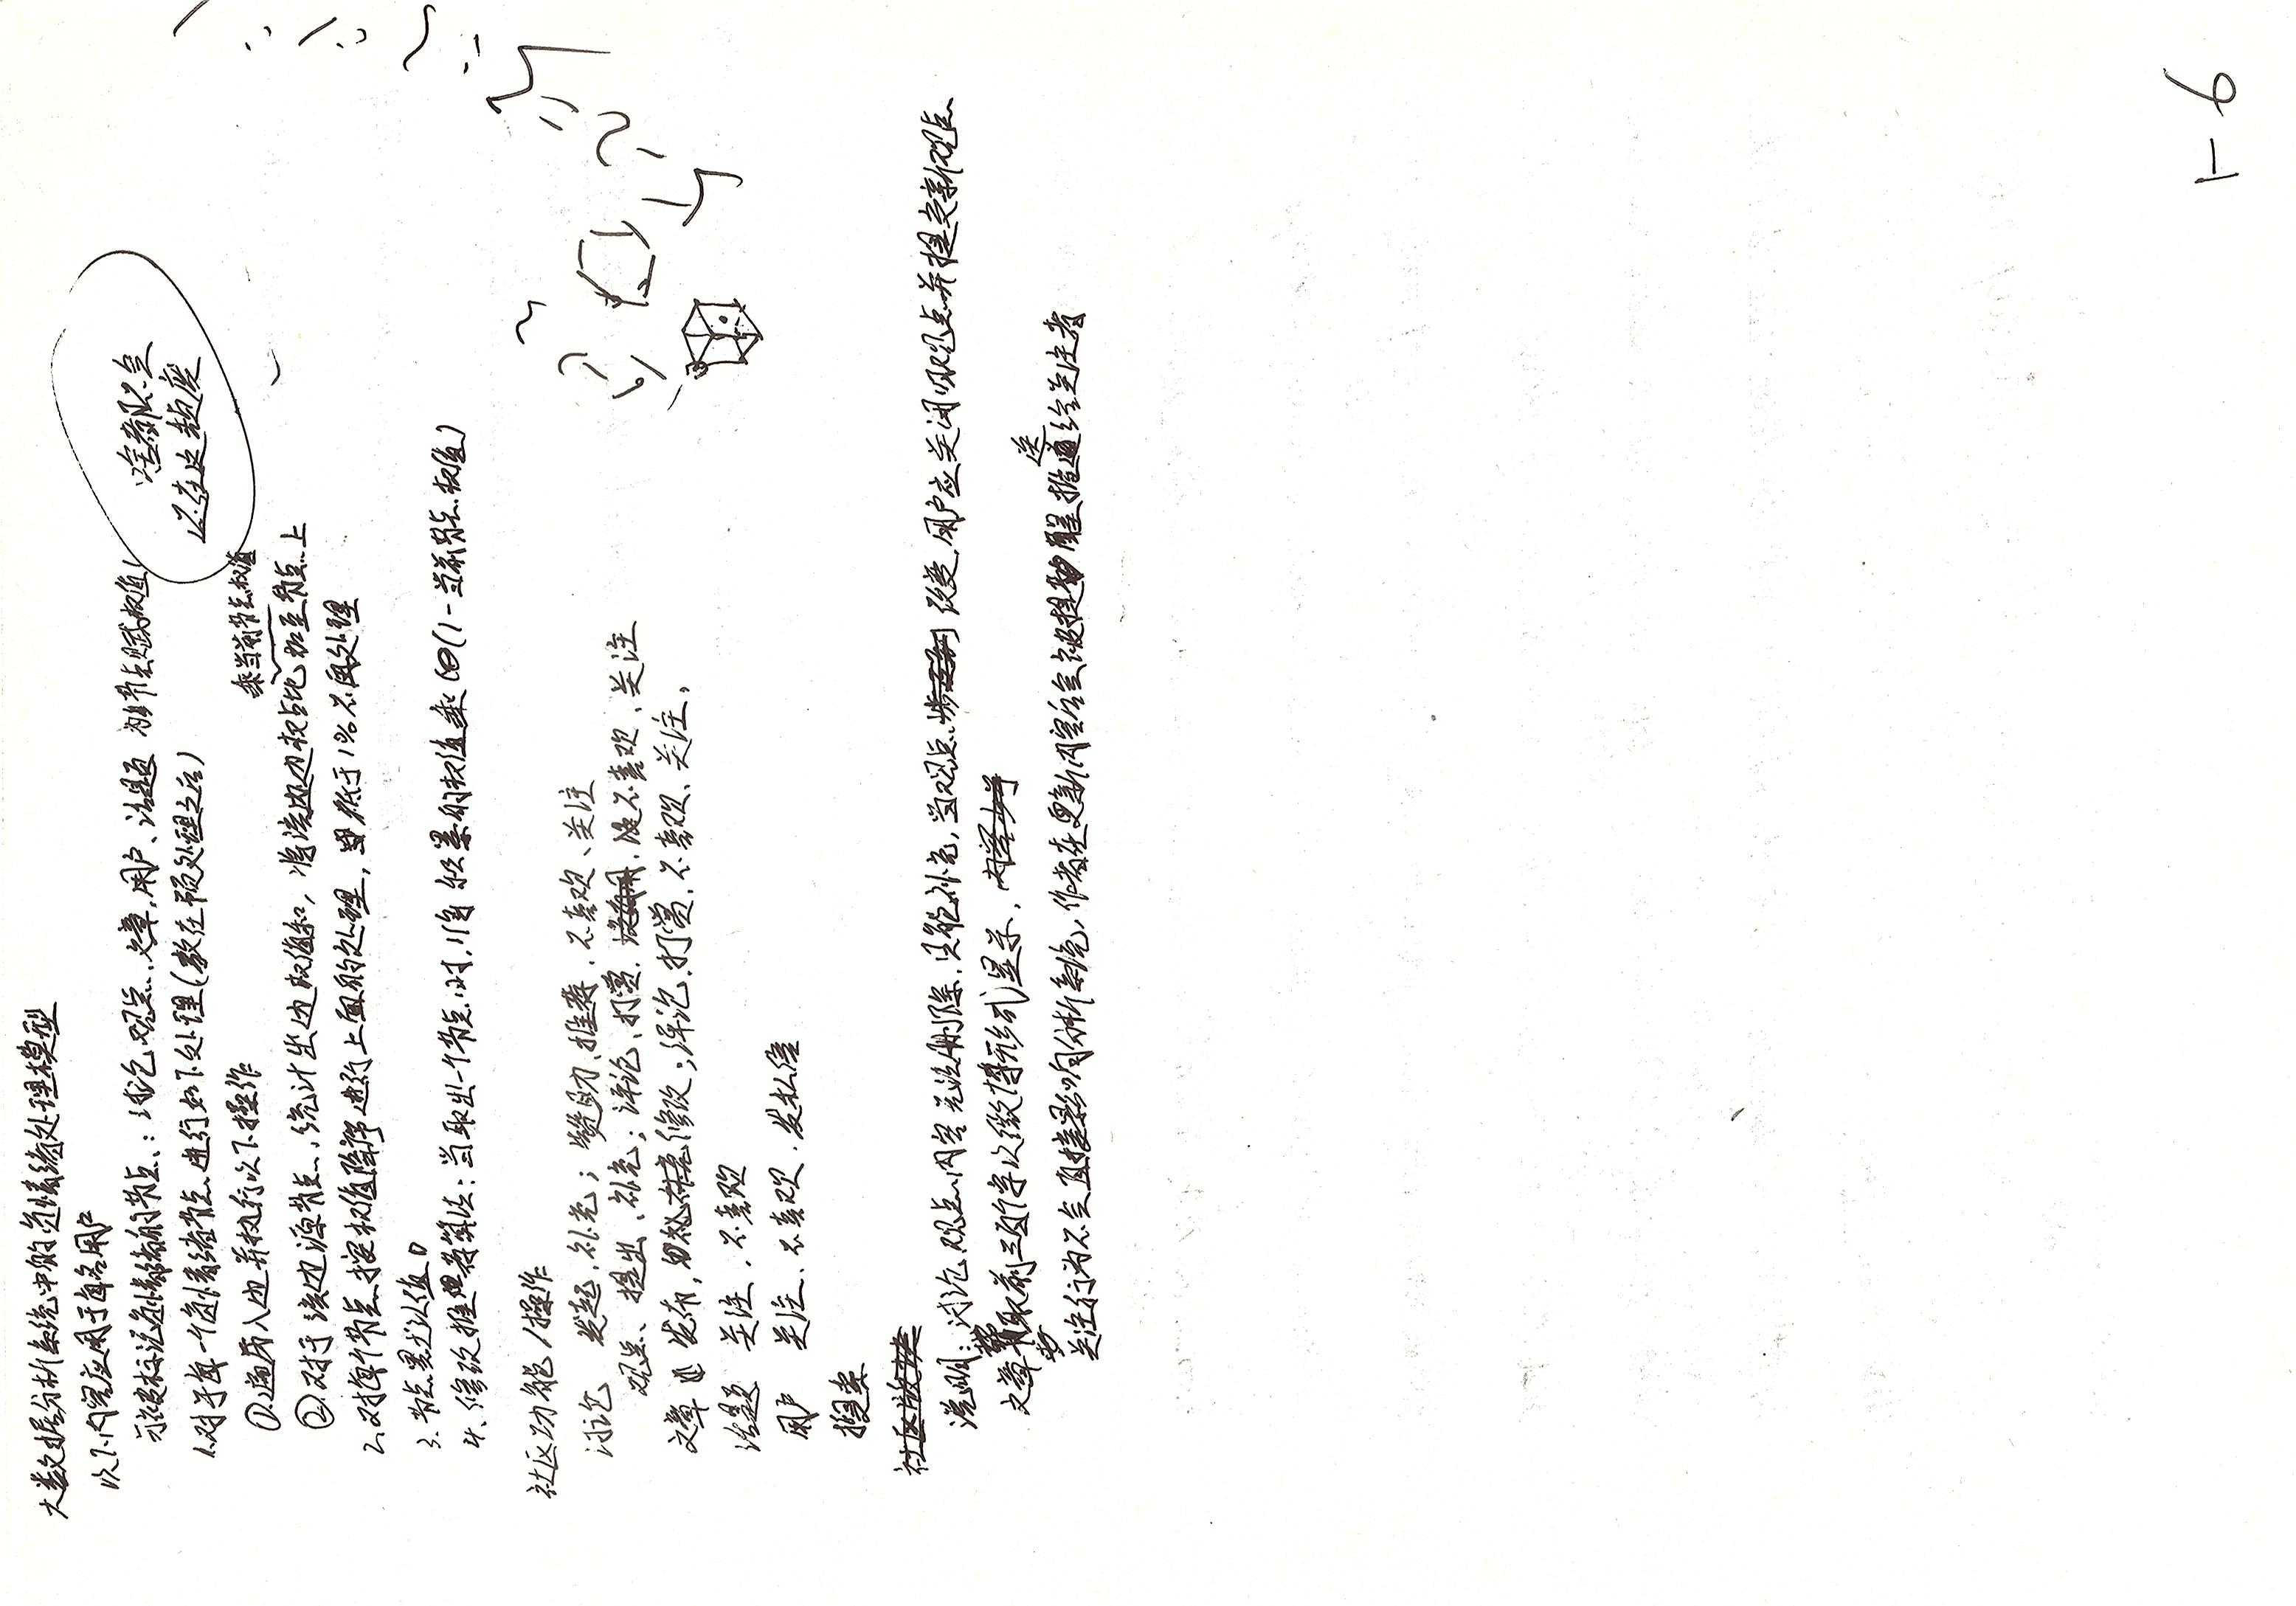 大数据分析系统中的负情绪处理模型
以下内容应用于每名用户
可被标记负情绪的节点：讨论、观点、文章、用户、话题 为节点赋权值1
啥都不会
还在这颓废
1.对于每一个负情绪节点、进行如下处理(放在预处理之后)
①.遍历入边并执行以下操作
乘当前节点权值
②.对于该边源节点，统计出边权值和，将该边边权占比加至节点上
2.对每个节点按权值降序进行上面的处理，低于1%不再处理
3.节点默认值0
4.修改推荐算法：当取出一个节点时，将积累的权值乘(1-当前节点权值)
社区功能/操作
讨论 发起、补充；赞助、推荐、不喜欢、关注
观点、提出、补充；评论、打赏、不喜欢、关注
文章 发布，修改；评论、打赏、不喜欢、关注，
话题 关注、不喜欢
用户 关注、不喜欢、发私信
搜索
社区版块
说明：讨论、观点内容无法删除，只能补充，当观点改变，用户应关闭旧观点并提交新观点
文章取前三百个字以微博形式显示，
送
关注行为不会直接影响分析系统，作者在更新内容后会被提醒推给关注者
1-6